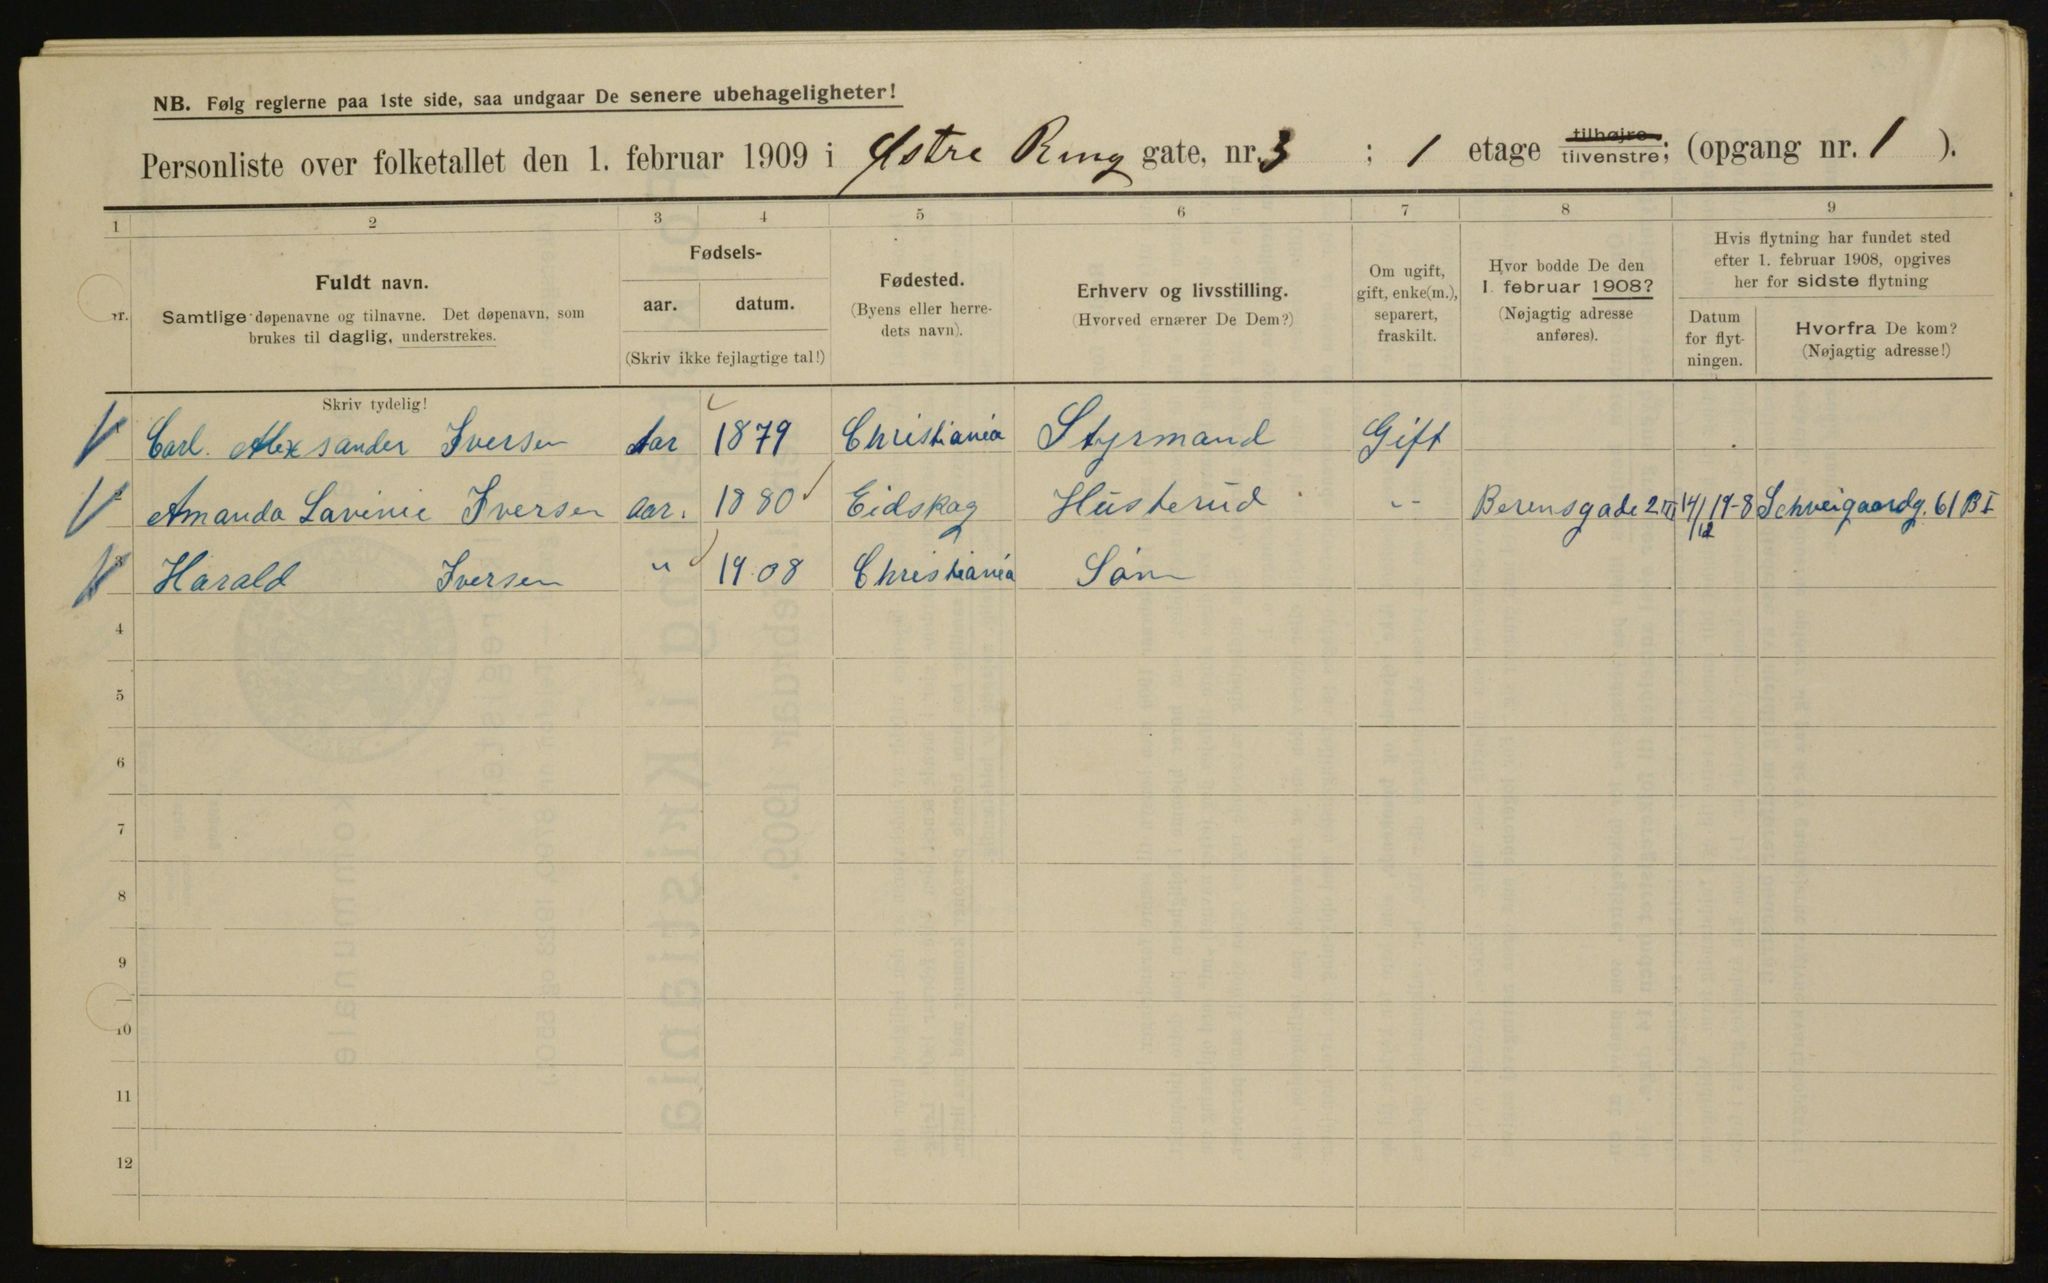 NB. Følg reglerne paa 1ste side, saa undgaar De senere ubehageligheter!
Personliste over folketallet den 1. februar 1909 i Østre Ring gate, nr. 3 ; 1 etage tilhøjre tilvenstre; (opgang nr. 1 ).
1 2 3 4 5 6 7 8 9
nr.
Fuldt navn.
Samtlige døpenavne og tilnavne. Det døpenavn, som
brukes til daglig, understrekes.
Fødsels-
aar. datum.
(Skriv ikke fejlagtige tal!)
Fødested.
(Byens eller herre-
dets navn).
Erhverv og livsstilling.
(Hvorved ernærer De Dem?)
Om ugift,
gift, enke(m.),
separert,
fraskilt.
Hvor bodde De den
1. februar 1908?
(Nøjagtig adresse
anføres).
Hvis flytning har fundet sted
efter 1. februar 1908, opgives
her for sidste flytning
Datum
for flyt-
ningen.
Hvorfra De kom?
(Nøjagtig adresse!)
Skriv tydelig!
Carl. Alexsander Iversen Aar 1879 Christiania Styrmand Gift
Amanda Lavinie Iversen Aar. 1880 Eidskog Husterud -- Berensgade 2 III 14/12 19-8 Schveigaardg. 61 B I
3 Harald Iversen " 1908 Christiania Søn
4
5
6
7
8
9
10
11
12